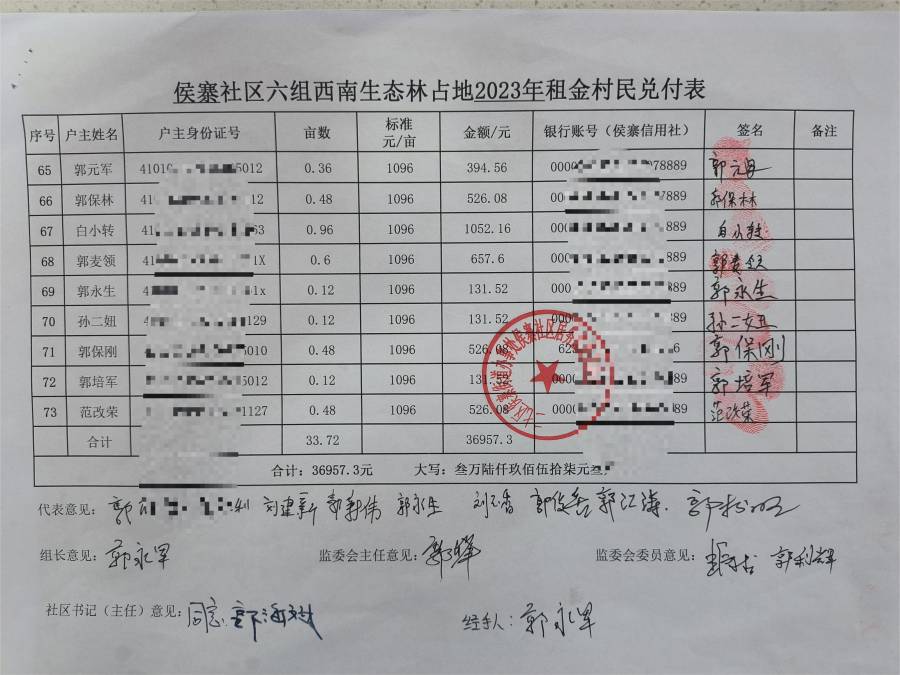 侯寨社区六组西南生态林占地2023年租金村民兑付表
序号 户主姓名 户主身份证号 亩数 标准元/亩 金额/元 银行账号（侯寨信用社） 签名 备注
65 郭元军 4101 5012 0.36 1096 394.56 0000 78889 郭元军
66 郭保林 41 12 0.48 1096 526.08 00 889 郭保林
67 白小转 41 63 0.96 1096 1052.16 000 889 白小转
68 郭麦领 41 1X 0.6 1096 657.6 000 889 郭麦领
69 郭永生 41 1x 0.12 1096 131.52 000 889 郭永生
70 孙二妞 4 129 0.12 1096 131.52 000 889 孙二妞
71 郭保刚 5010 0.48 1096 526.08 62 6 郭保刚
72 郭培军 5012 0.12 1096 131.52 000 889 郭培军
73 范改荣 1127 0.48 1096 526.08 000 89 范改荣
合计 33.72 36957.3
合计：36957.3元 大写：叁万陆仟玖佰伍拾柒元叁
代表意见：郭 刘建新 郭新伟 郭永生 郭江涛
组长意见：郭永军 监委会主任意见：郭 监委会委员意见： 郭利辉
社区书记（主任）意见：同意 郭海 经手人：郭永军